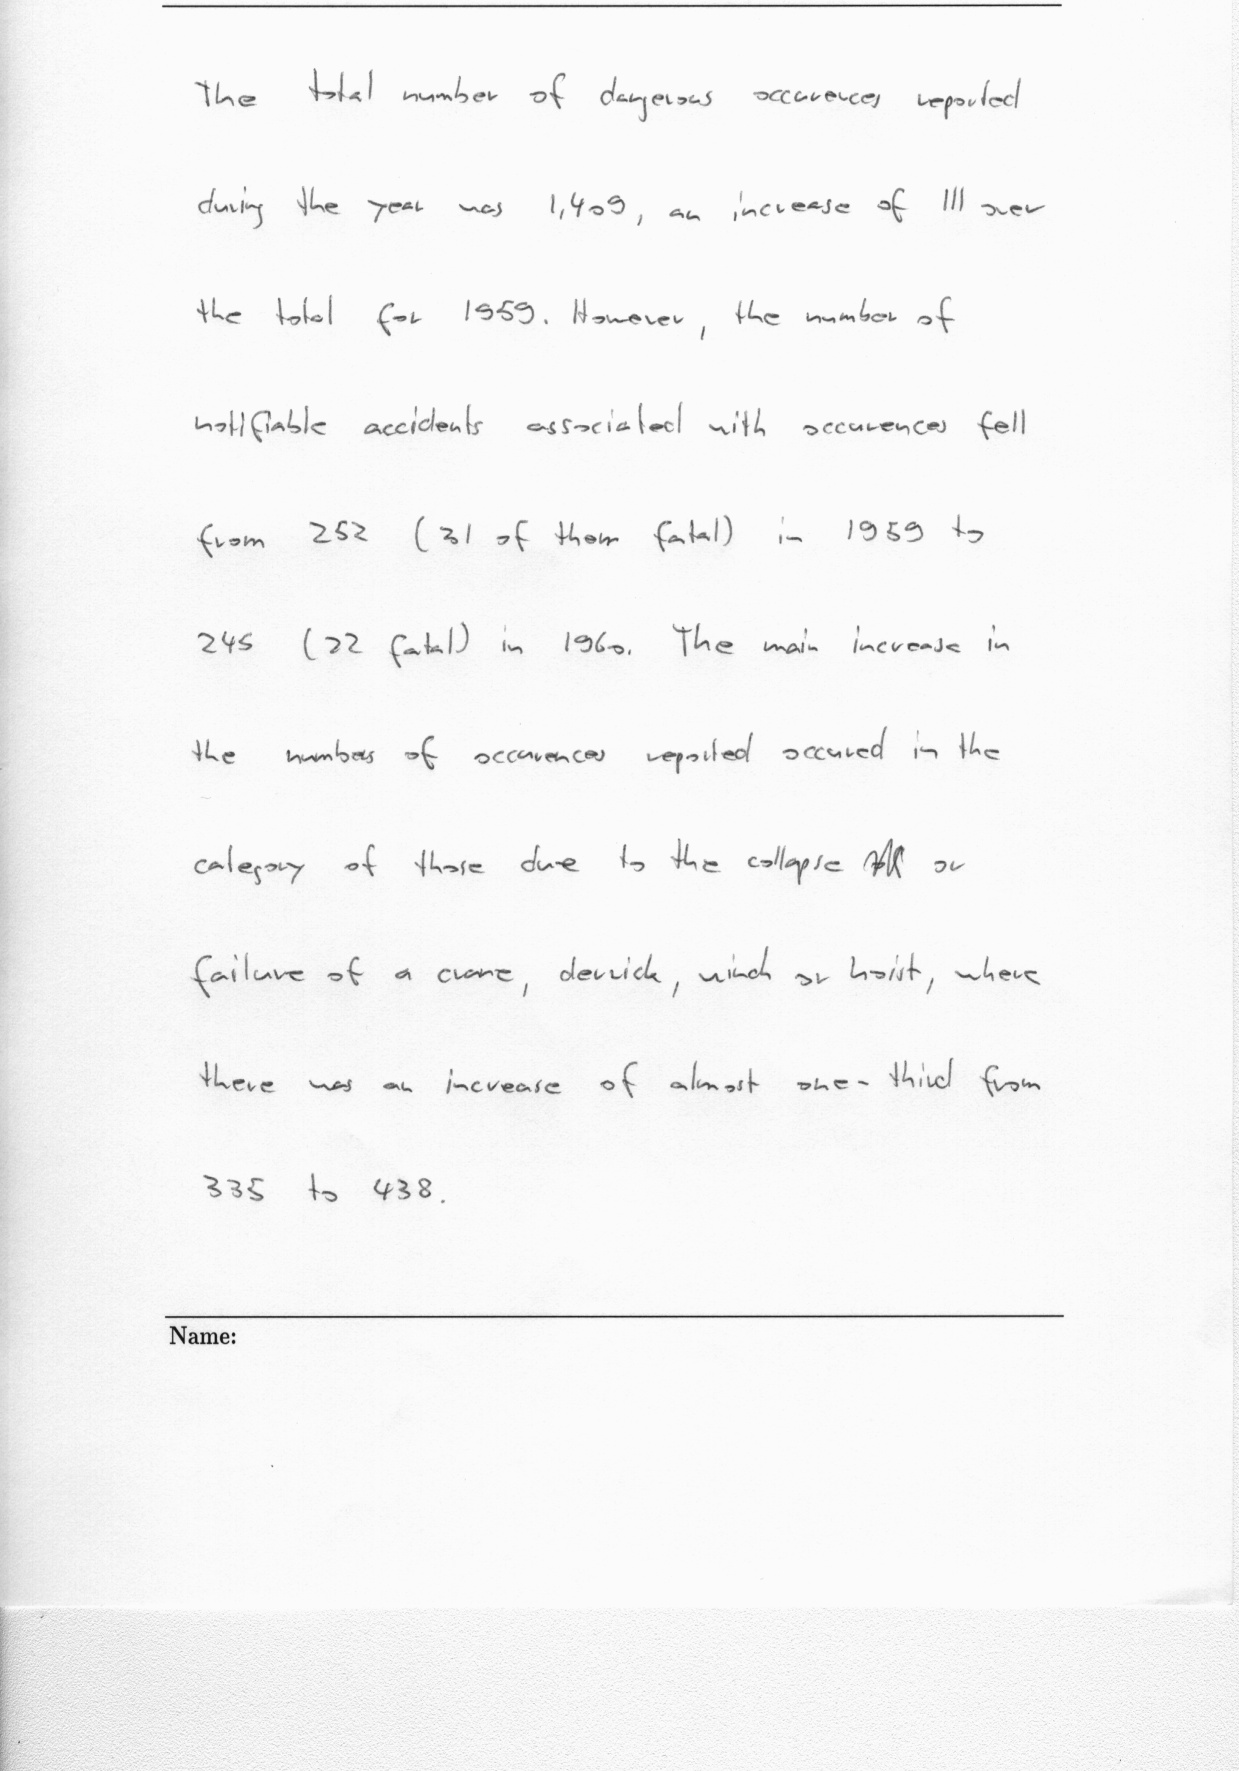 The total number of dangerous occurences reported
during the year was 1,409, an increase of 111 over
the total for 1959. However, the number of
notifiable accidents associated with occurences fell
from 252 (31 of them fatal) in 1959 to
245 (22 fatal) in 1960. The main increase in
the numbers of occurences reported occured in the
category of those due to the collapse or
failure of a crane, derrick, winch or hoist, where
there was an increase of almost one-third from
335 to 438.
Name: